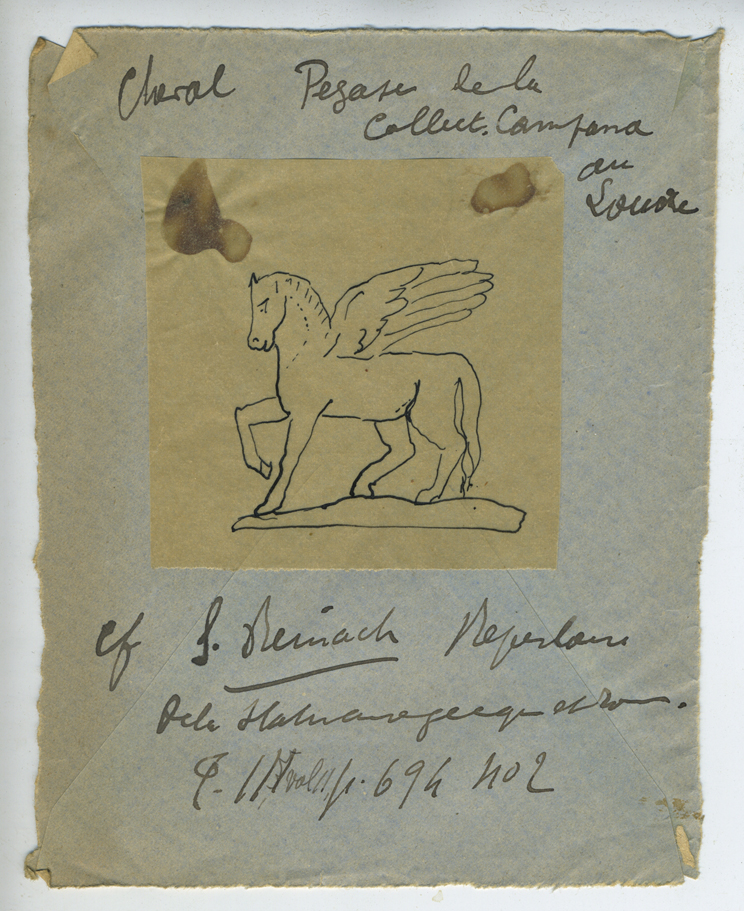 Cheval Pegase de la
Collect. Campana
au
Louvre
cf S. Reinach Repertoire
de la Statuaire grecque et rom.
T. II, vol II p. 694 No 2